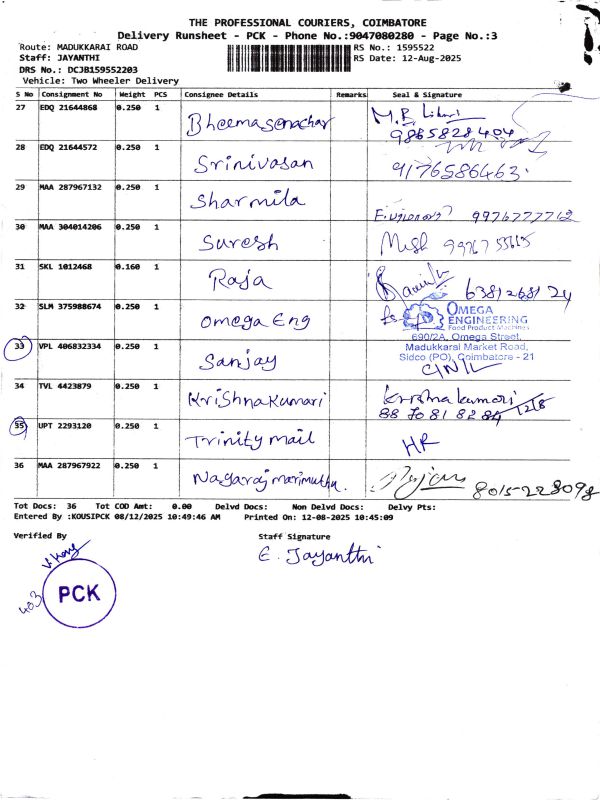 THE PROFESSIONAL COURIERS, COIMBATORE
Delivery Runsheet - PCK - Phone No.:9047080280 - Page No.:3
Route: MADUKKARAI ROAD RS No.: 1595522
Staff: JAYANTHI RS Date: 12-Aug-2025
DRS No.: DCJB159552203
Vehicle: Two Wheeler Delivery
S No Consignment No Weight PCS Consignee Details Remarks Seal & Signature
27 EDQ 21644868 0.250 1 Bheemasenachar M.B.
9865828404
28 EDQ 21644572 0.250 1 Srinivasan 9176586463.
29 MAA 287967132 0.250 1 Sharmila 9976777762
30 MAA 304014206 0.250 1 Suresh
31 SKL 1012468 0.160 1 Raja 6381268124
32 SLM 375988674 0.250 1 Omega Eng OMEGA
ENGINEERING
Food Product Machines
690/2A, Omega Street,
Madukkarai Market Road,
Sidco (PO), Coimbatore - 21
33 VPL 406832334 0.250 1 Sanjay
34 TVL 4423879 0.250 1 Krishnakumari krishnakumari
35 UPT 2293120 0.250 1 Trinity mail HR
36 MAA 287967922 0.250 1 Nagarajmarimuthu.
Tot Docs: 36 Tot COD Amt: 0.00 Delvd Docs: Non Delvd Docs: Delvy Pts:
Entered By :KOUSIPCK 08/12/2025 10:49:46 AM Printed On: 12-08-2025 10:45:09
Verified By Staff Signature
E. Jayanthi
403 PCK